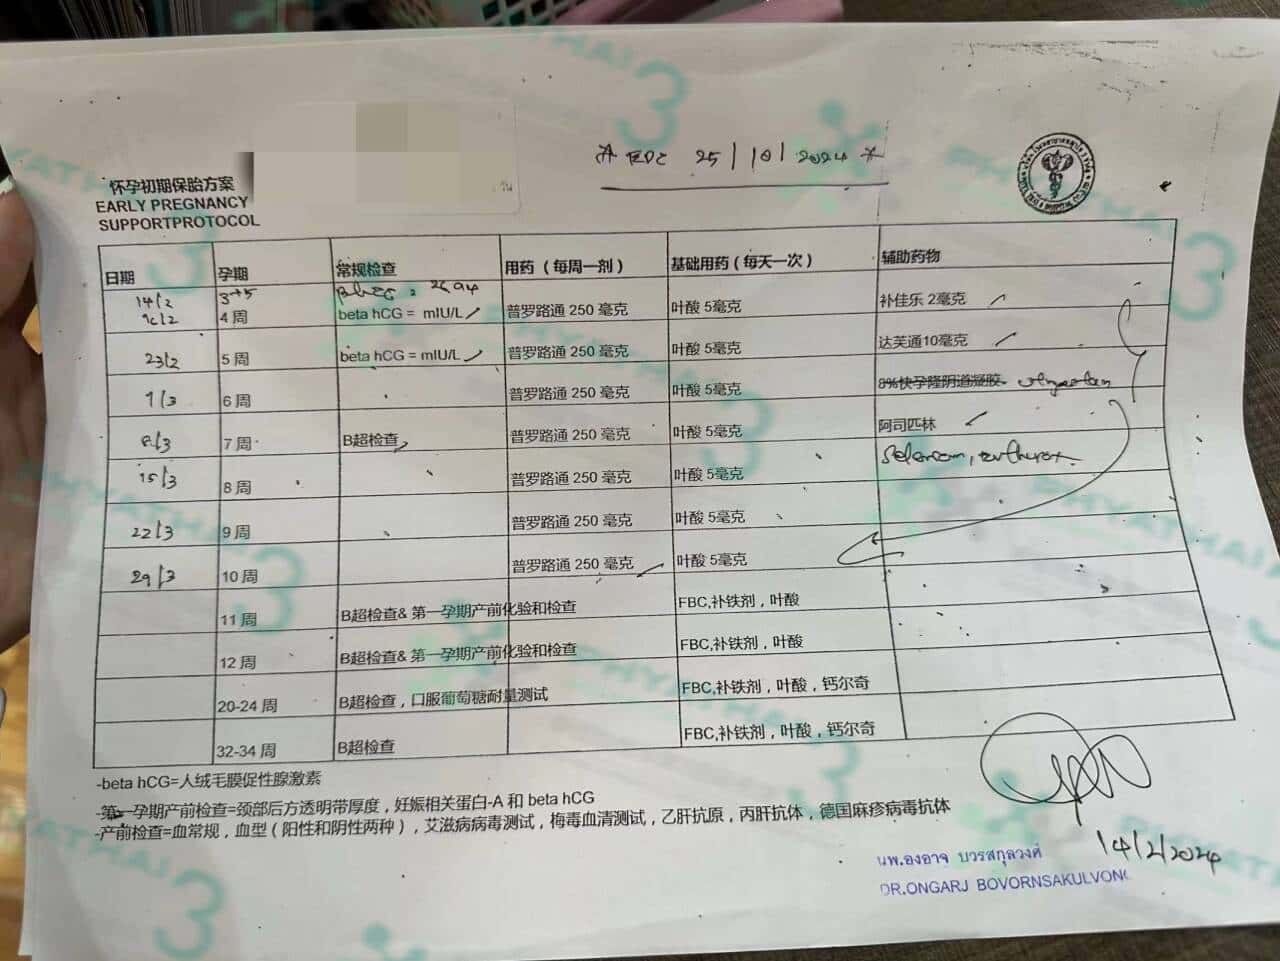 怀孕初期保胎方案
EARLY PREGNANCY
SUPPORTPROTOCOL
* EDC 25/10/2024 *
日期 孕期 常规检查 用药（每周一剂） 基础用药（每天一次） 辅助药物
14/2 3+5 βhCG = 2694
4 周 beta hCG = mIU/L 普罗路通 250 毫克 叶酸 5毫克 补佳乐 2毫克
23/2 5 周 beta hCG = mIU/L 普罗路通 250 毫克 叶酸 5毫克 达芙通10毫克
1/3 6 周 普罗路通 250 毫克 叶酸 5毫克 8%快孕隆阴道凝胶
8/3 7 周 B超检查 普罗路通 250 毫克 叶酸 5毫克 阿司匹林
15/3 8 周 普罗路通 250 毫克 叶酸 5毫克
22/3 9 周 普罗路通 250 毫克 叶酸 5毫克
29/3 10 周 普罗路通 250 毫克 叶酸 5毫克
11 周 B超检查& 第一孕期产前化验和检查 FBC,补铁剂，叶酸
12 周 B超检查& 第一孕期产前化验和检查 FBC,补铁剂，叶酸
20-24 周 B超检查，口服葡萄糖耐量测试 FBC,补铁剂，叶酸，钙尔奇
32-34 周 B超检查 FBC,补铁剂，叶酸，钙尔奇
-beta hCG=人绒毛膜促性腺激素
-第一孕期产前检查=颈部后方透明带厚度，妊娠相关蛋白-A 和 beta hCG
-产前检查=血常规，血型（阳性和阴性两种），艾滋病病毒测试，梅毒血清测试，乙肝抗原，丙肝抗体，德国麻疹病毒抗体
14/2/2024
นพ.องอาจ บวรสกุลวงศ์
DR.ONGARJ BOVORNSAKULVONG